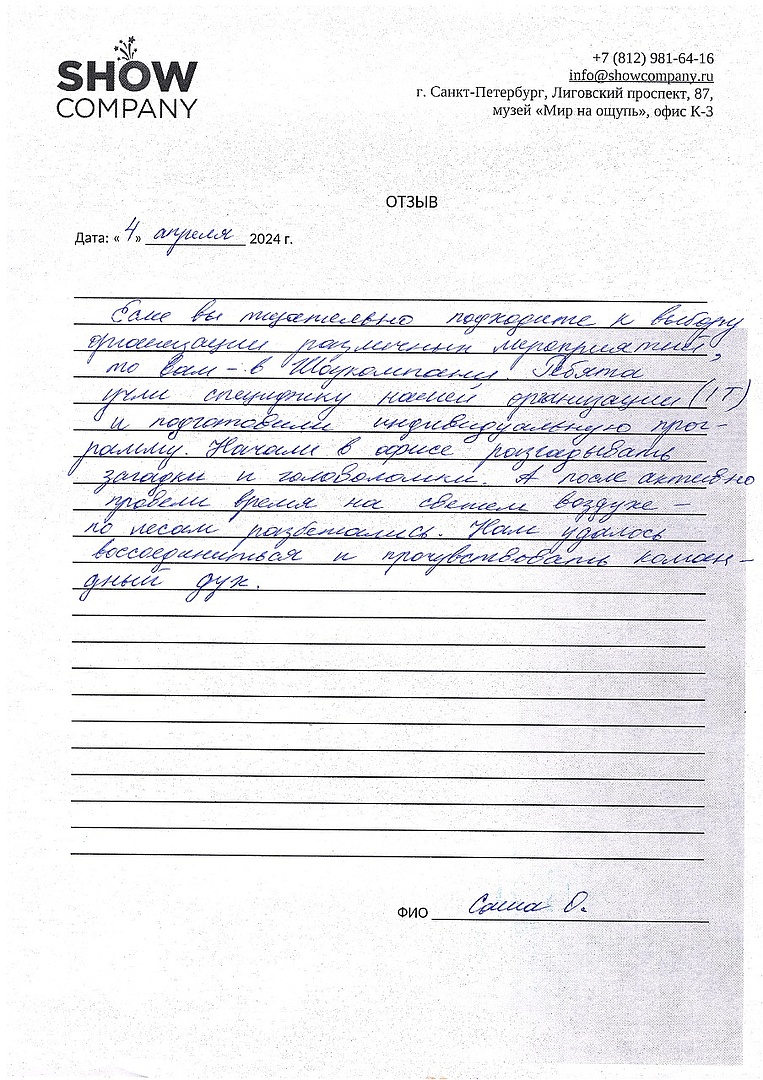 SHOW
COMPANY
+7 (812) 981-64-16
info@showcompany.ru
г. Санкт-Петербург, Лиговский проспект, 87,
музей «Мир на ощупь», офис К-3
ОТЗЫВ
Дата: « 4 » апреля 2024 г.
Если вы тщательно подходите к выбору
организации различных мероприятий,
то Вам – в Шоукомпани. Ребята
учли специфику нашей организации (IT)
и подготовили индивидуальную прог-
рамму. Начали в офисе разгадывать
загадки и головоломки. А после активно
провели время на свежем воздухе –
по лесам разбежались. Нам удалось
воссоединиться и прочувствовать коман-
дный дух.
ФИО Саша О.